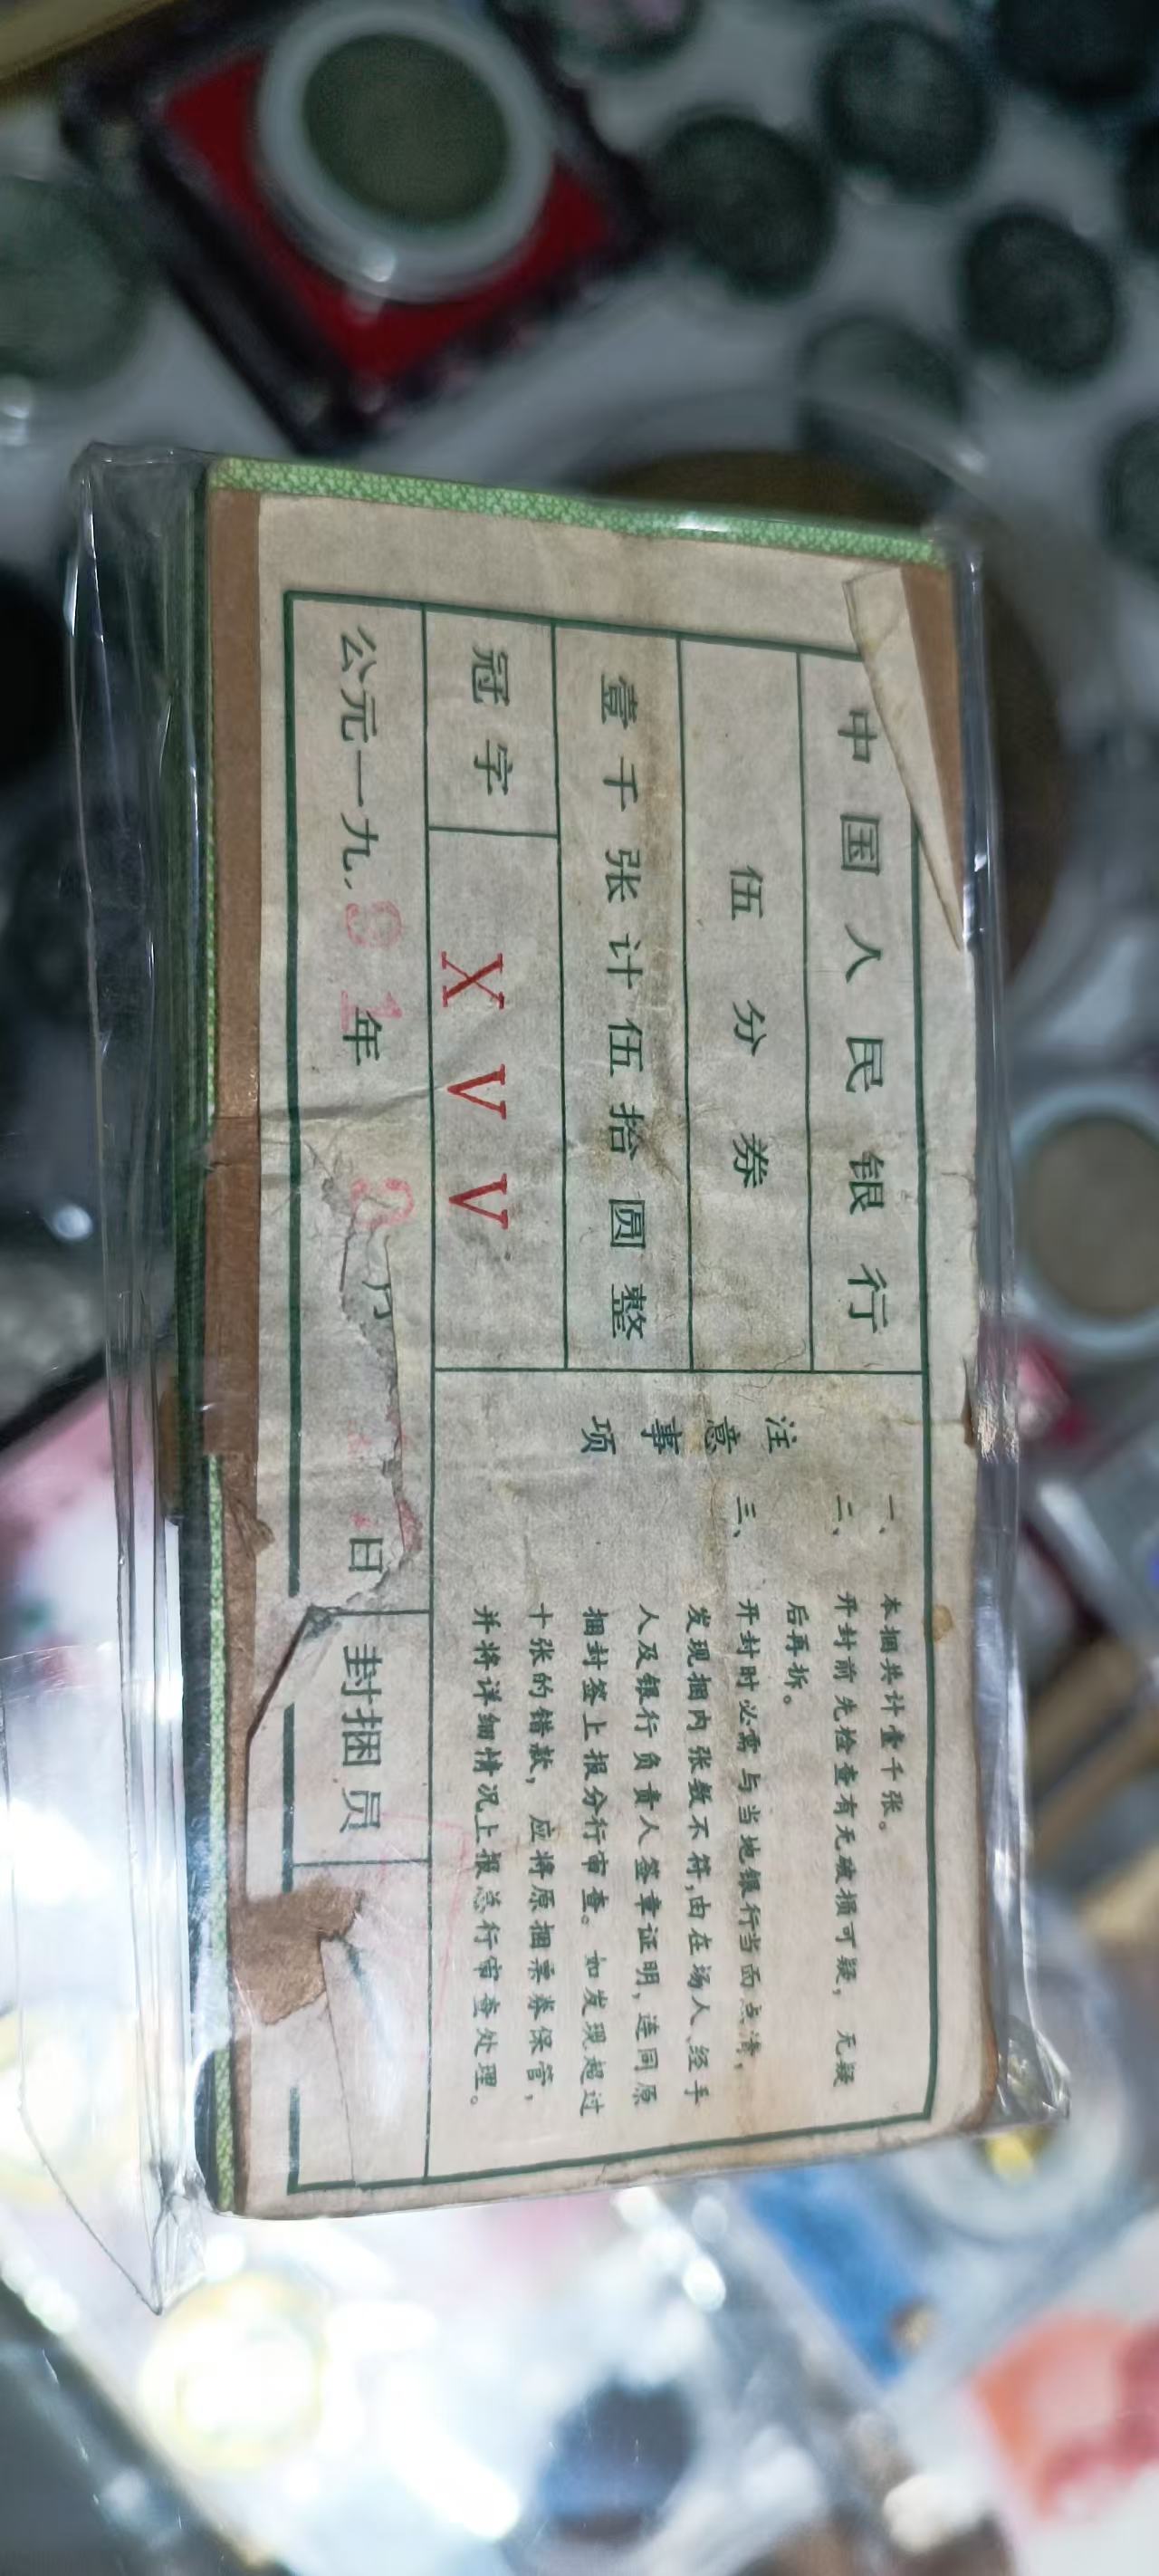 中国人民银行
伍分券
壹千张计伍拾圆整
冠字 XVV
公元一九.91年2月 日 封捆员
注意事项
一、本捆共计壹千张。
二、开封前先检查有无破损可疑，无疑
后再拆。
三、开封时必需与当地银行当面点清，
发现捆内张数不符，由在场人、经手
人及银行负责人签章证明，连同原
捆封签上报分行审查。如发现超过
十张的错款，应将原捆票券保管，
并将详细情况上报总行审查处理。